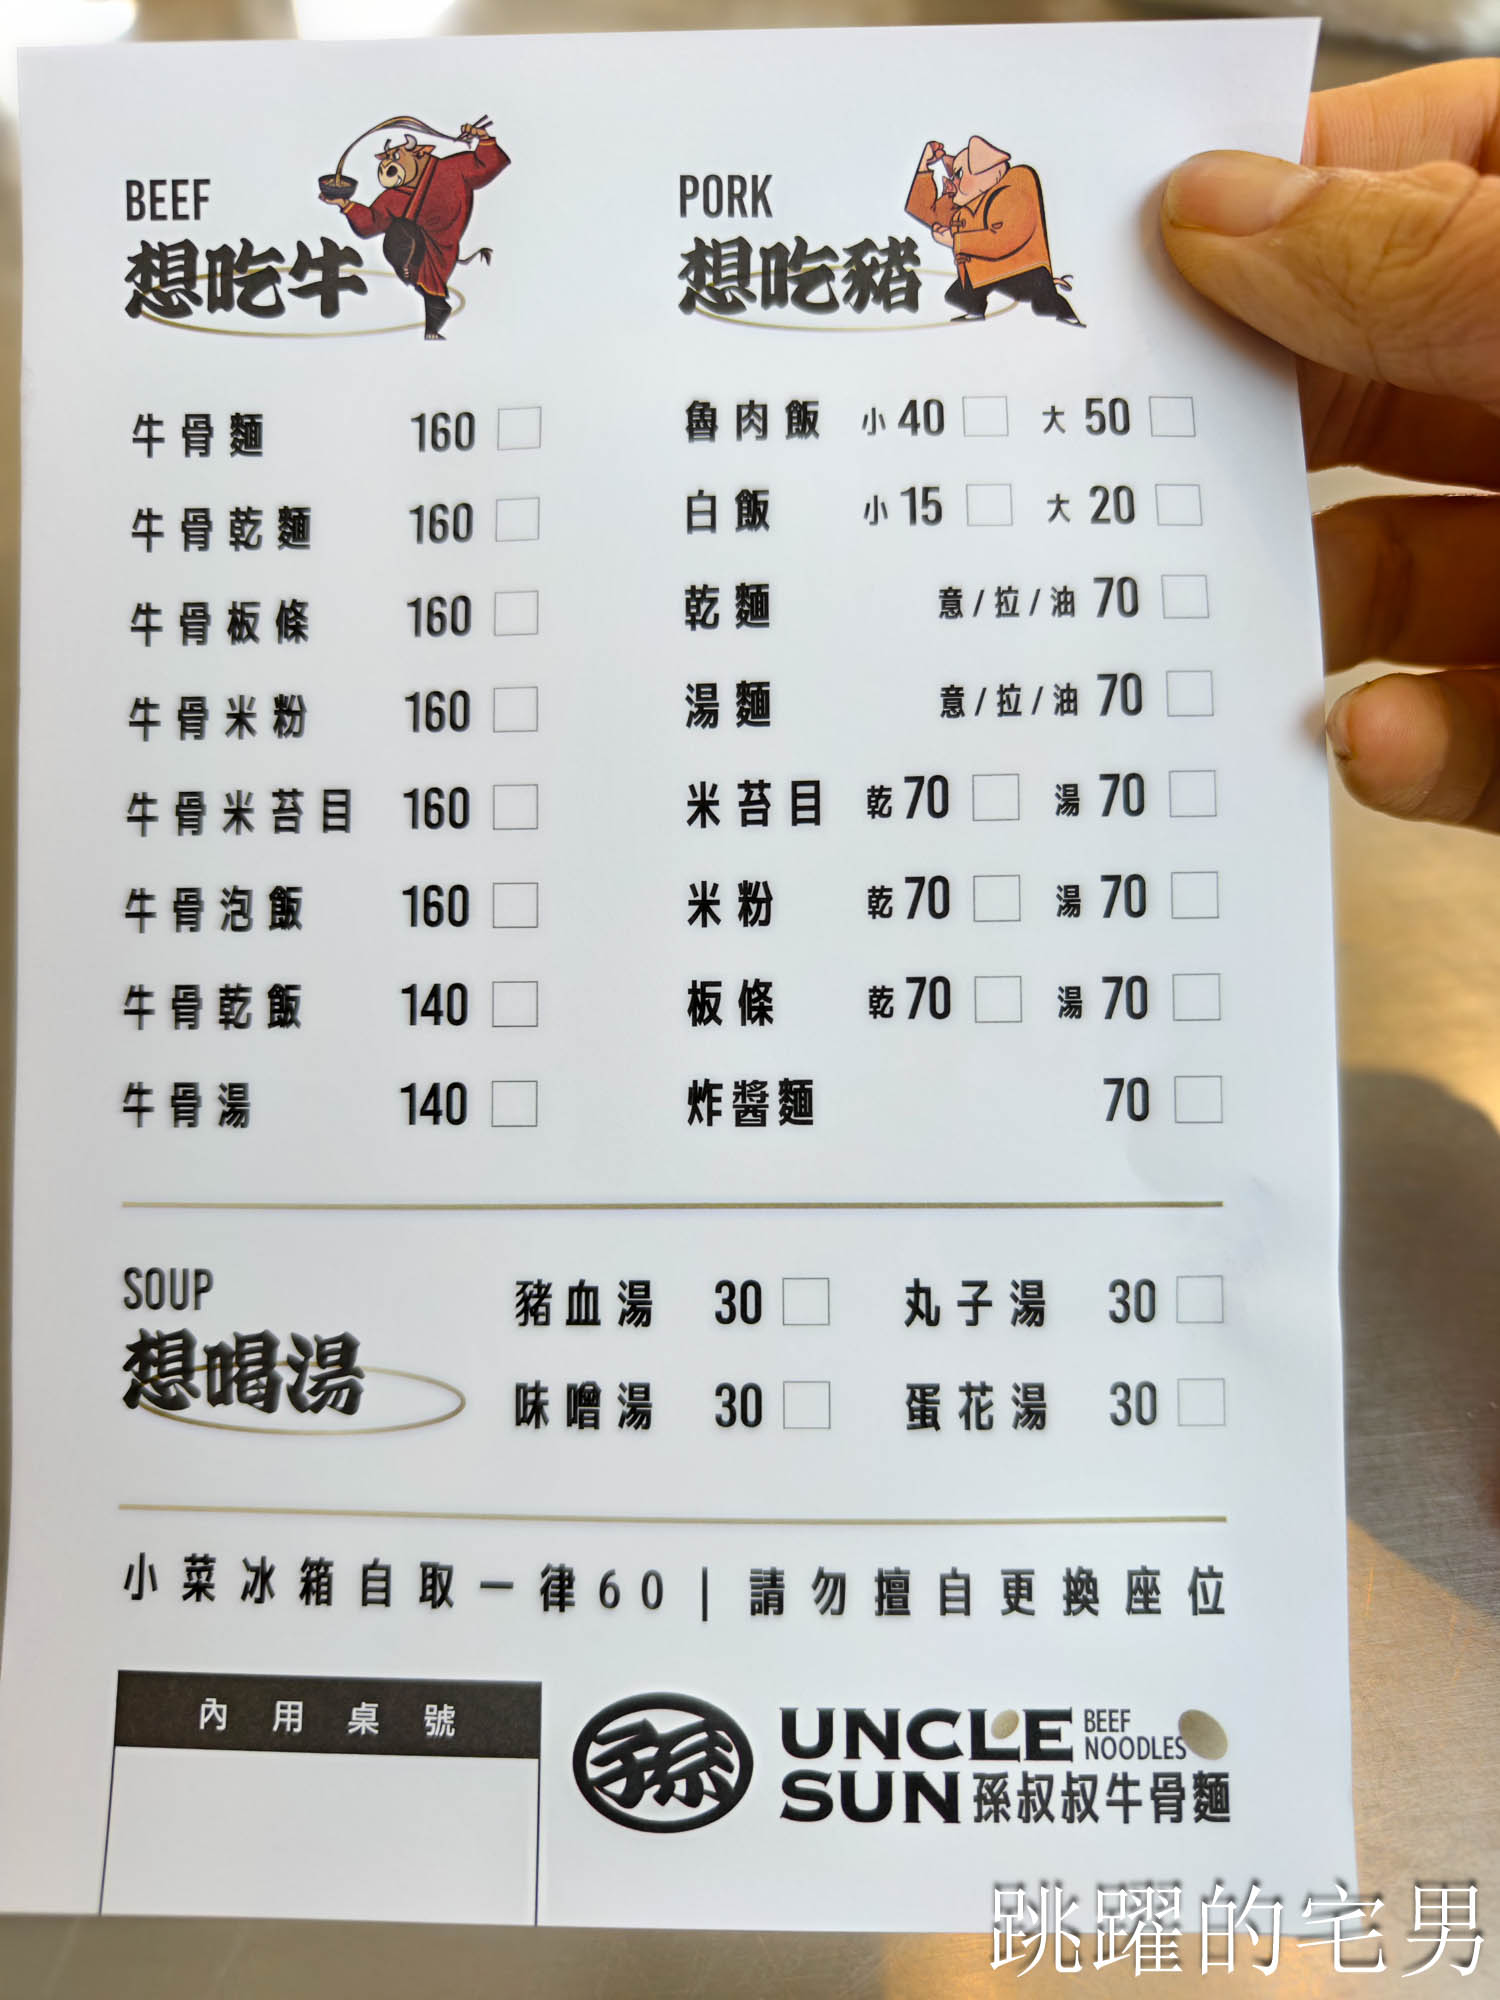 BEEF
想吃牛
牛骨麵 160
牛骨乾麵 160
牛骨板條 160
牛骨米粉 160
牛骨米苔目 160
牛骨泡飯 160
牛骨乾飯 140
牛骨湯 140
PORK
想吃豬
魯肉飯 小 40 大 50
白飯 小 15 大 20
乾麵 意/拉/油 70
湯麵 意/拉/油 70
米苔目 乾 70 湯 70
米粉 乾 70 湯 70
板條 乾 70 湯 70
炸醬麵 70
SOUP
想喝湯
豬血湯 30 丸子湯 30
味噌湯 30 蛋花湯 30
小菜冰箱自取一律60|請勿擅自更換座位
內用桌號
孫
UNCLE BEEF NOODLES
SUN 孫叔叔牛骨麵
跳躍的宅男